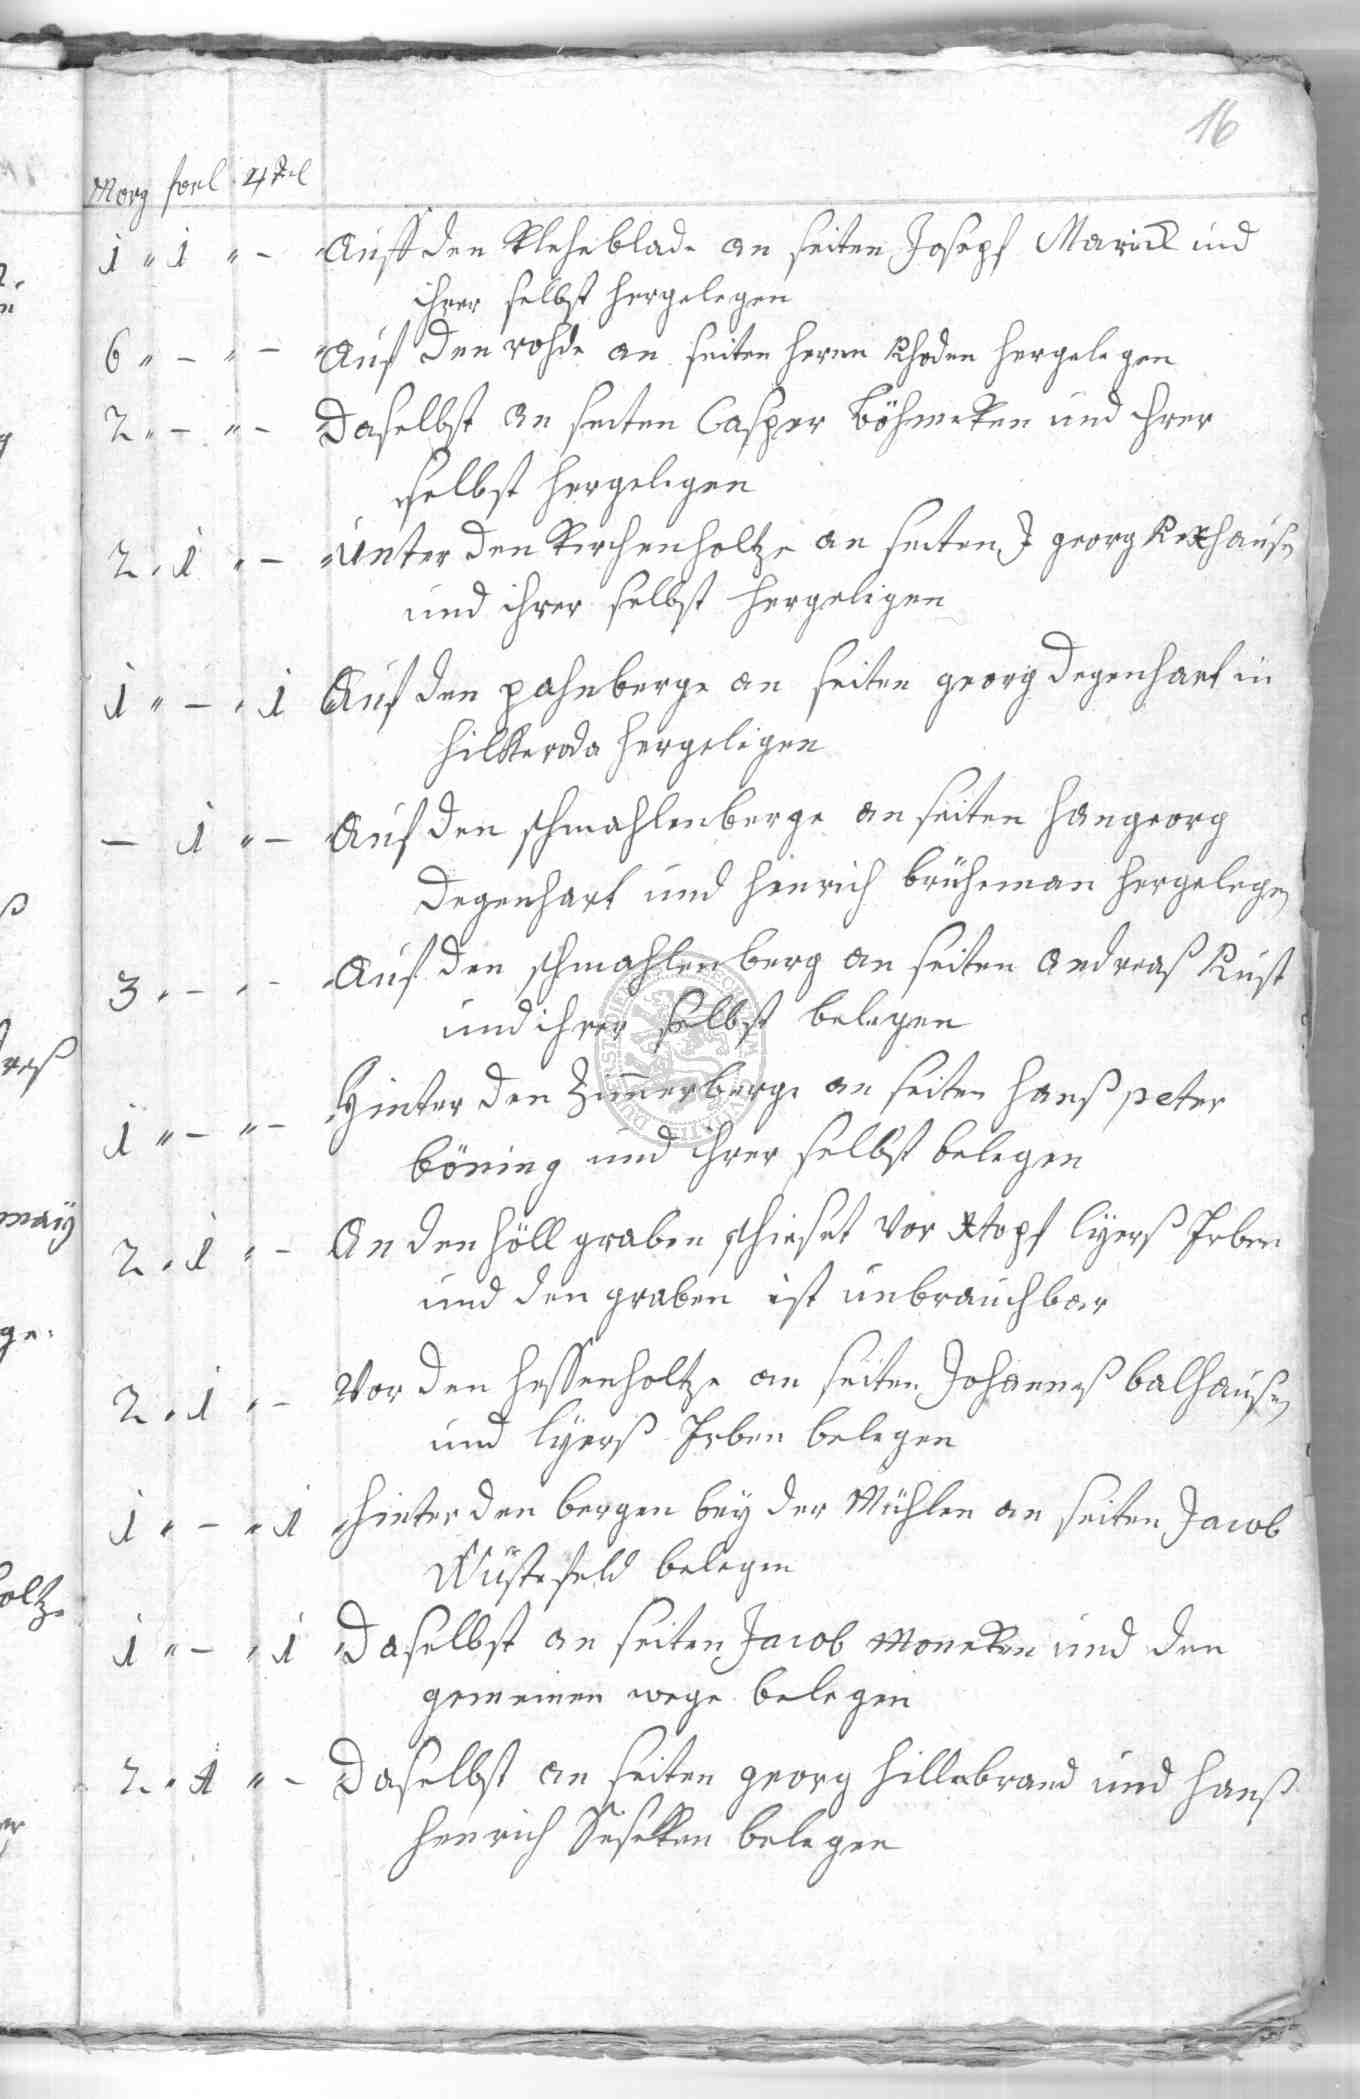 16
Morg forl 4tel
1 " 1 " - Auff den Kleheblade an seiten Josepf Marick und
ihrer selbst hergelegen
6 " - " - Auf den rohde an seiten herrn Rhoden hergelegen
2 " - " - Daselbst an seiten Casper Böhmeken und ihrer
selbst hergelegen
2 " 1 " - Unter den Kirchenholtze an seiten J georg Rexhausen
und ihrer selbst hergelegen
1 " - " 1 Auf den pahnberge an seiten georg Degenhart in
hilkeroda hergelegen
- 1 " - Auf den schmahlenberge an seiten hangeorg
Degenhart und hinrich brüheman hergelegen
3 " - " - Auf den schmahlenberg an seiten andreaß Rust
und ihrer selbst belegen
1 " - " - Hinter den Zimerberge an seiten hanß peter
böning und ihrer selbst belegen
2 " 1 " - An den höll graben schieset vor xtopf lyerß Erben
und den graben ist unbrauchbar
2 " 1 " - Vor den hessenholtze an seiten Johanneß balhausen
und lyerß Erben belegen
1 " - " 1 hinter den bergen bey der Mühlen an seiten Jacob
Wüstefeld belegen
1 " - " 1 Daselbst an seiten Jacob Moneken und den
gemeinen wege belegen
2 " 1 " - Daselbst an seiten georg hillebrand und hanß
henrich Seseken belegen